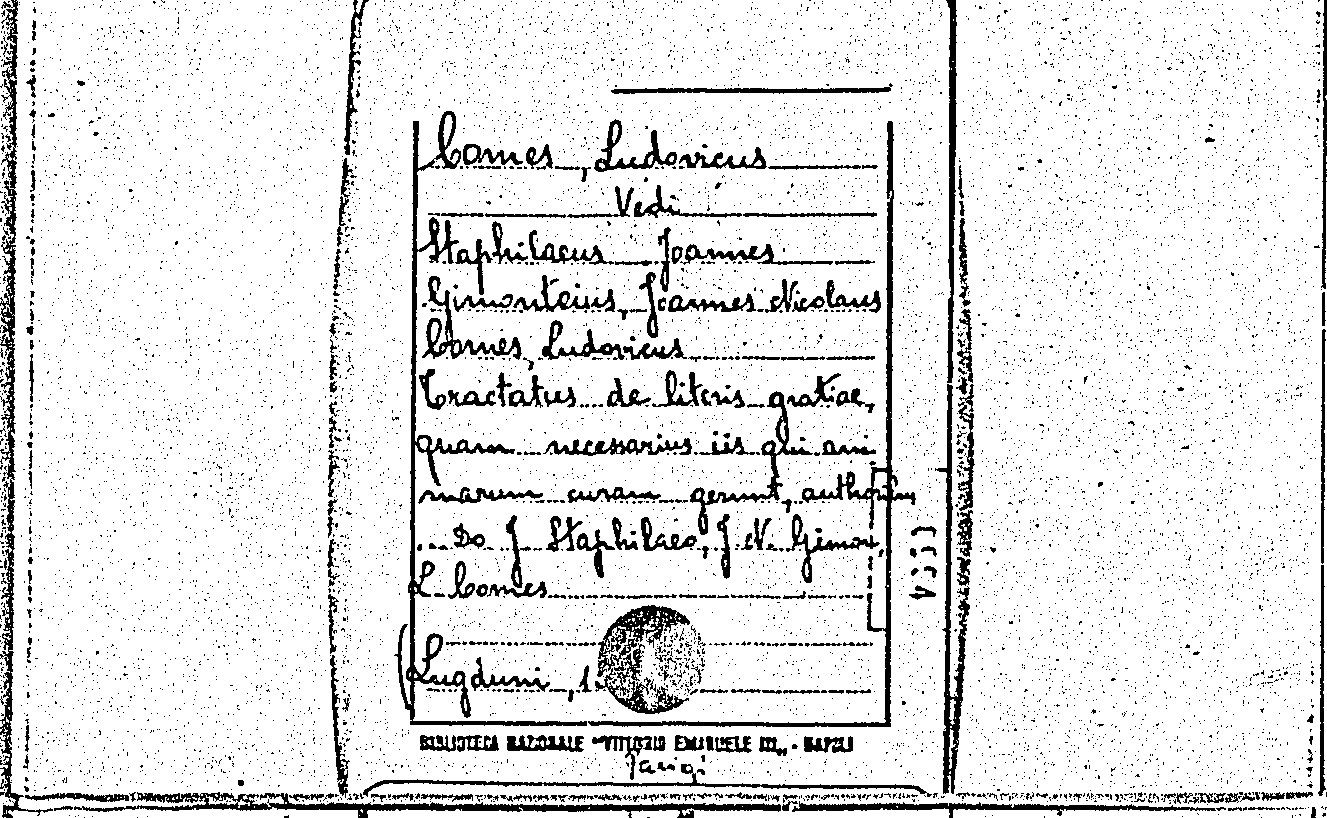 Comes, Ludovicus
Vedi
Staphilaeus Joannes
Gimonteius, Joannes Nicolaus
Comes, Ludovicus
Tractatus de literis gratiae,
quam necessarius iis qui ani
marum curam gerunt, authorib
... Do J Staphilaeo, J N. Gimon,
L. Comes
(Lugduni, 1
BIBLIOTECA NAZIONALE "VITTORIO EMANUELE III" - NAPOLI